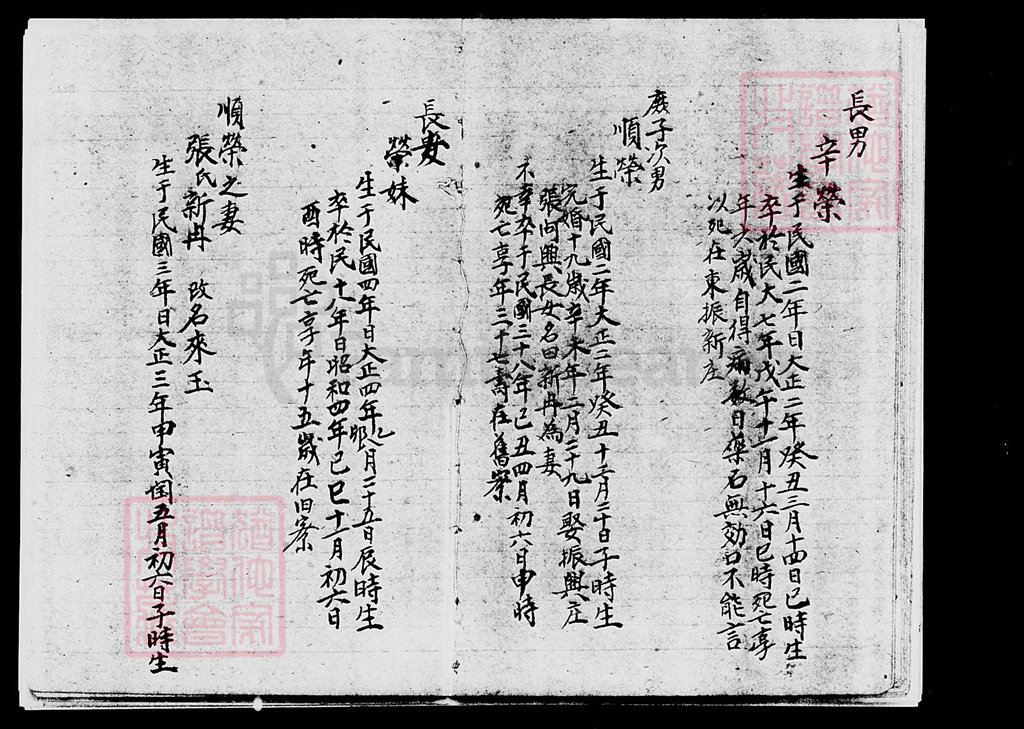 長男
辛榮
生于民國二年日大正二年癸丑三月十四日巳時生
卒於民大七年戊午十一月十六日巳時死亡享
年六歲自得病数日藥石無効口不能言
以死在東振新庄
庶子次男
順榮
生于民國二年大正二年癸丑十二月二十日子時生
完婚十九歲辛未年二月二十九日娶振興庄
張阿興長女名曰新冉為妻
不幸卒于民國三十八年己丑四月初六日申時
死亡享年三十七壽在舊寮
長妻
榮妹
生于民國四年日大正四年乙卯八月二十五日辰時生
卒於民十八年日昭和四年己巳十一月初六日
酉時死亡享年十五歲在旧寮
順榮之妻
張氏新冉 改名來玉
生于民國三年日大正三年甲寅閏五月初六日子時生